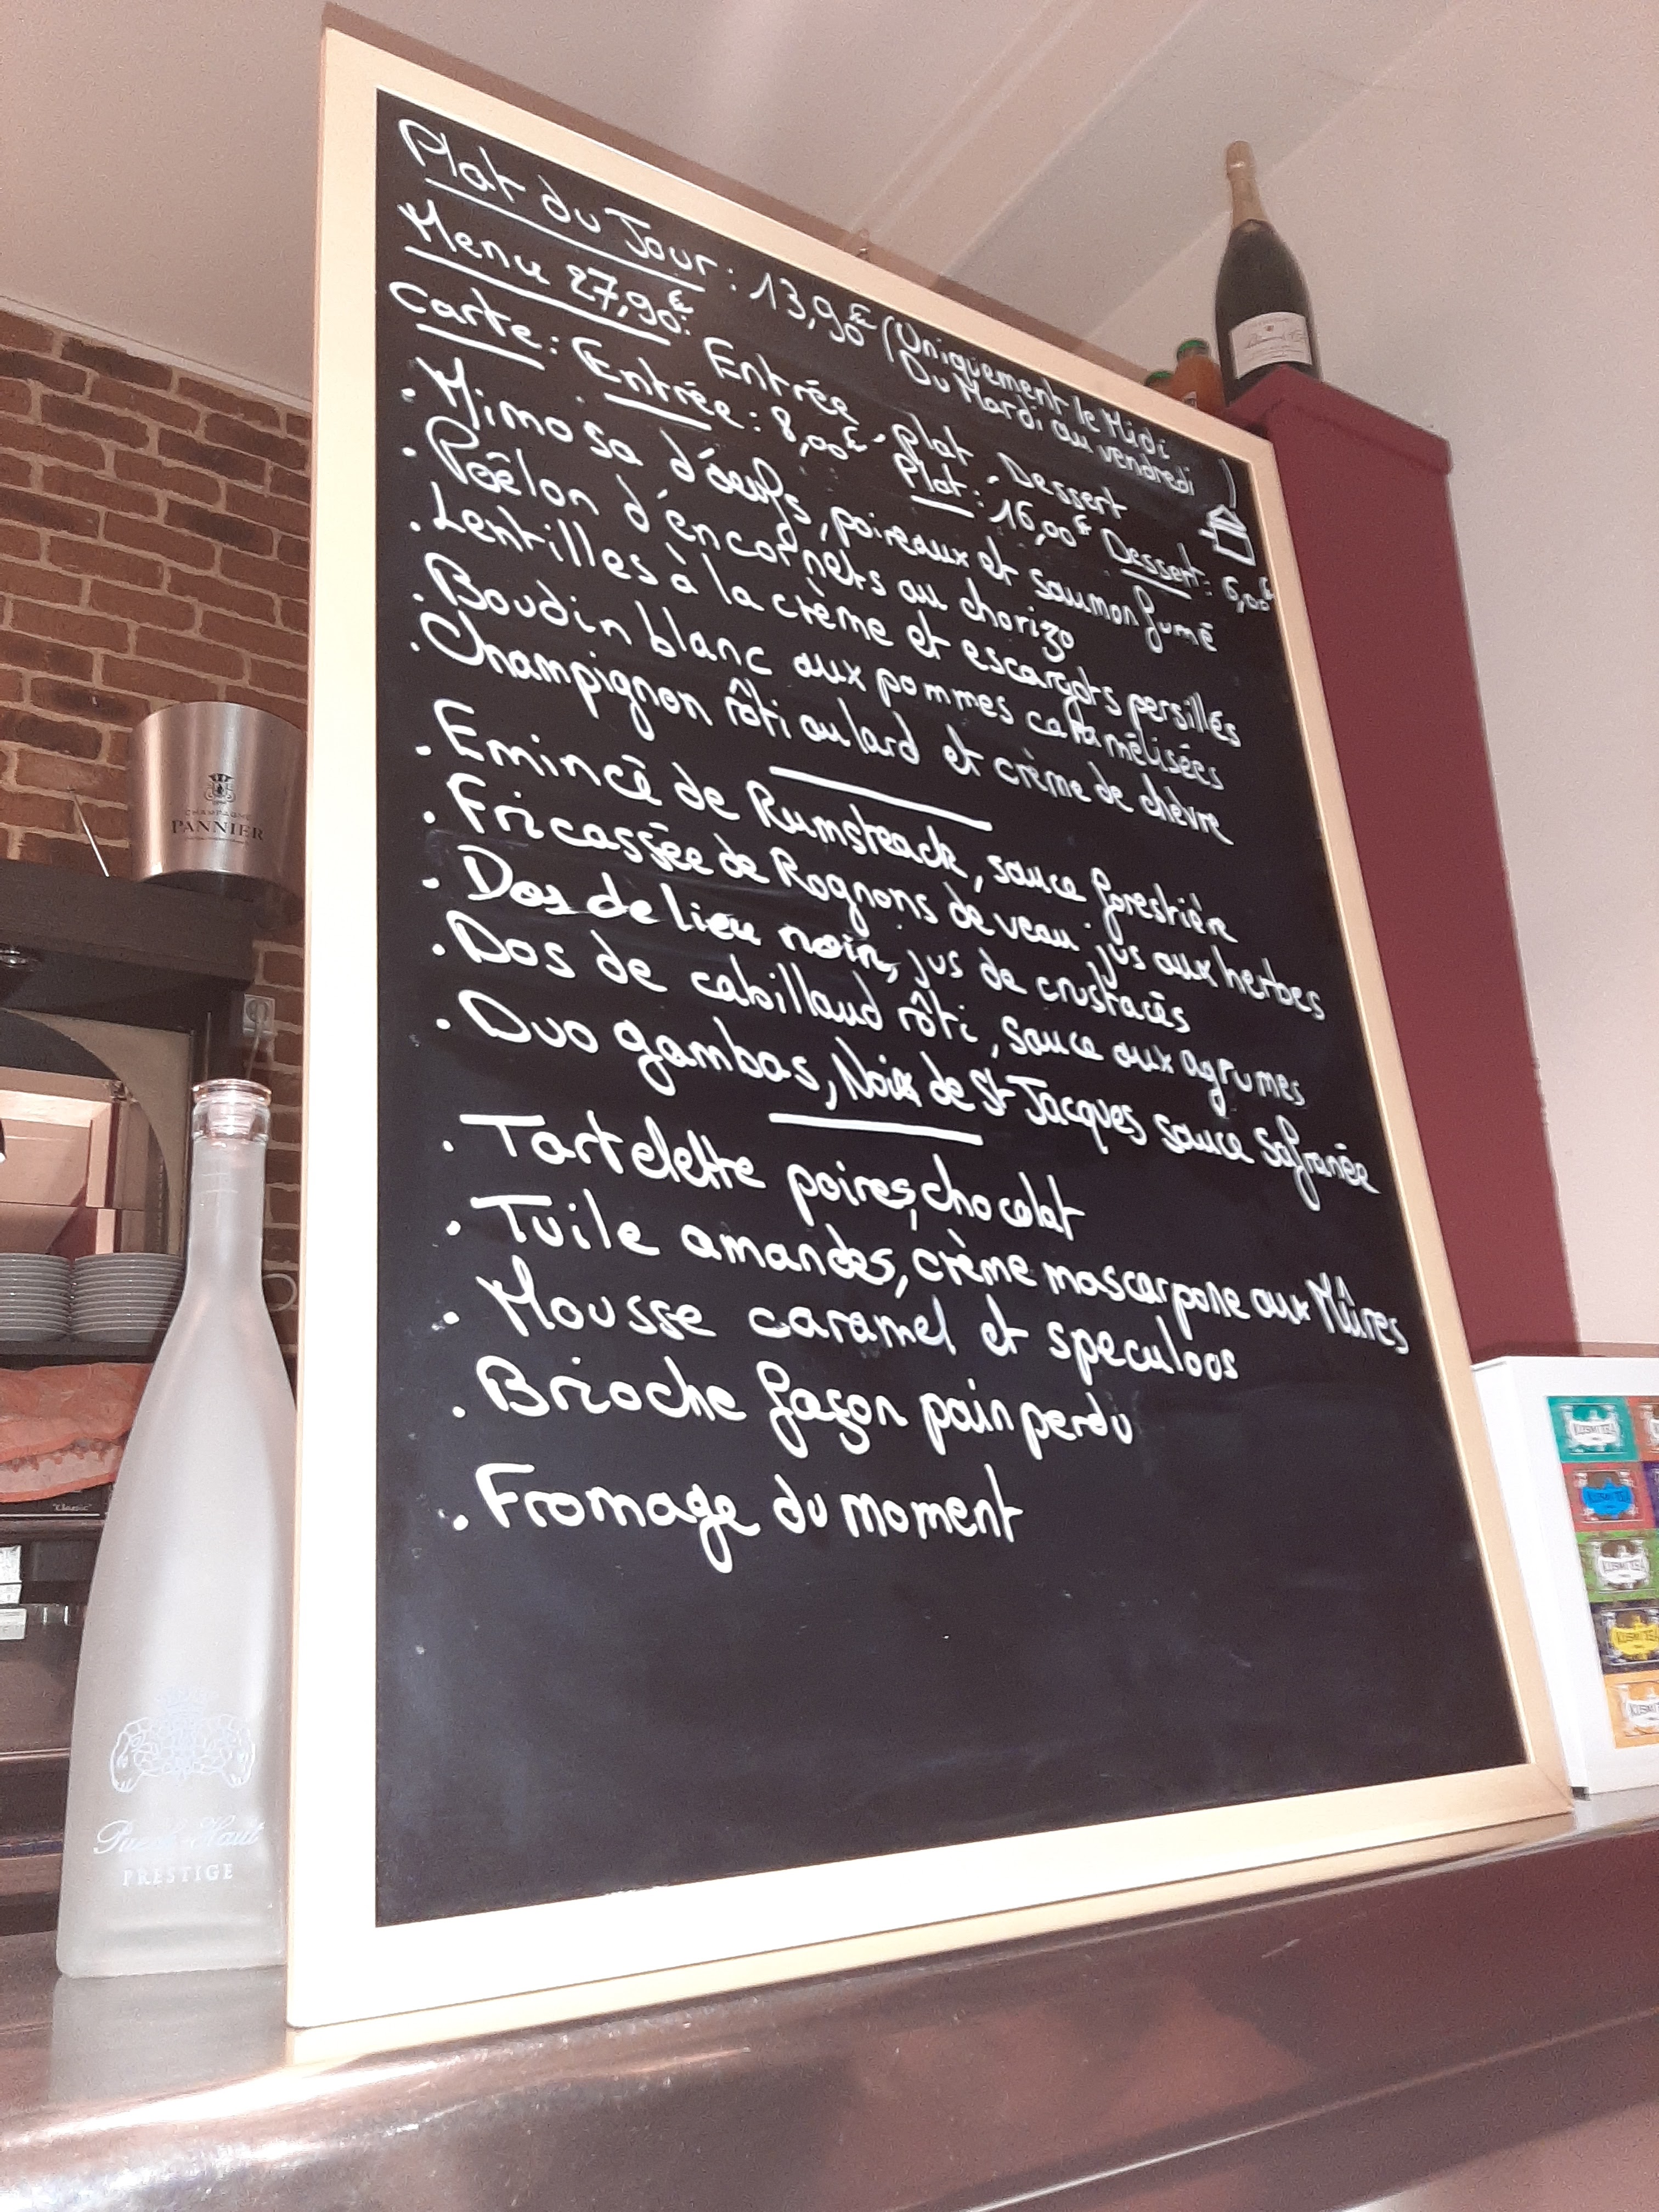 Plat du Jour : 13,90€ (Uniquement le Midi
Du Mardi au vendredi)
Menu 27,90€: Entrée - plat - Dessert
Carte : Entrée : 8,00€ - Plat : 16,00€ Dessert : 6,00€
. Mimosa d'œufs, poireaux et saumon fumé
. Poêlon d'encornets au chorizo
. Lentilles à la crème et escargots persillés
. Boudin blanc aux pommes caramélisées
. Champignon rôti au lard et crème de chèvre
. Emincé de Rumsteack, sauce forestière
. Fricassée de Rognons de veau jus aux herbes
. Dos de lieu noir, jus de crustacés
. Dos de cabillaud rôti, sauce aux agrumes
. Duo gambas, Noix de St Jacques sauce safranée
. Tartelette poires, chocolat
. Tuile amandes, crème mascarpone aux Mûres
. Mousse caramel et speculoos
. Brioche façon pain perdu
. Fromage du moment
CHAMPAGNE
PANNIER
"Classic"
Puech-Haut
PRESTIGE
KUSMI TEA
KUSMI TEA
KUSMI TEA
KUSMI TEA
KUSMI